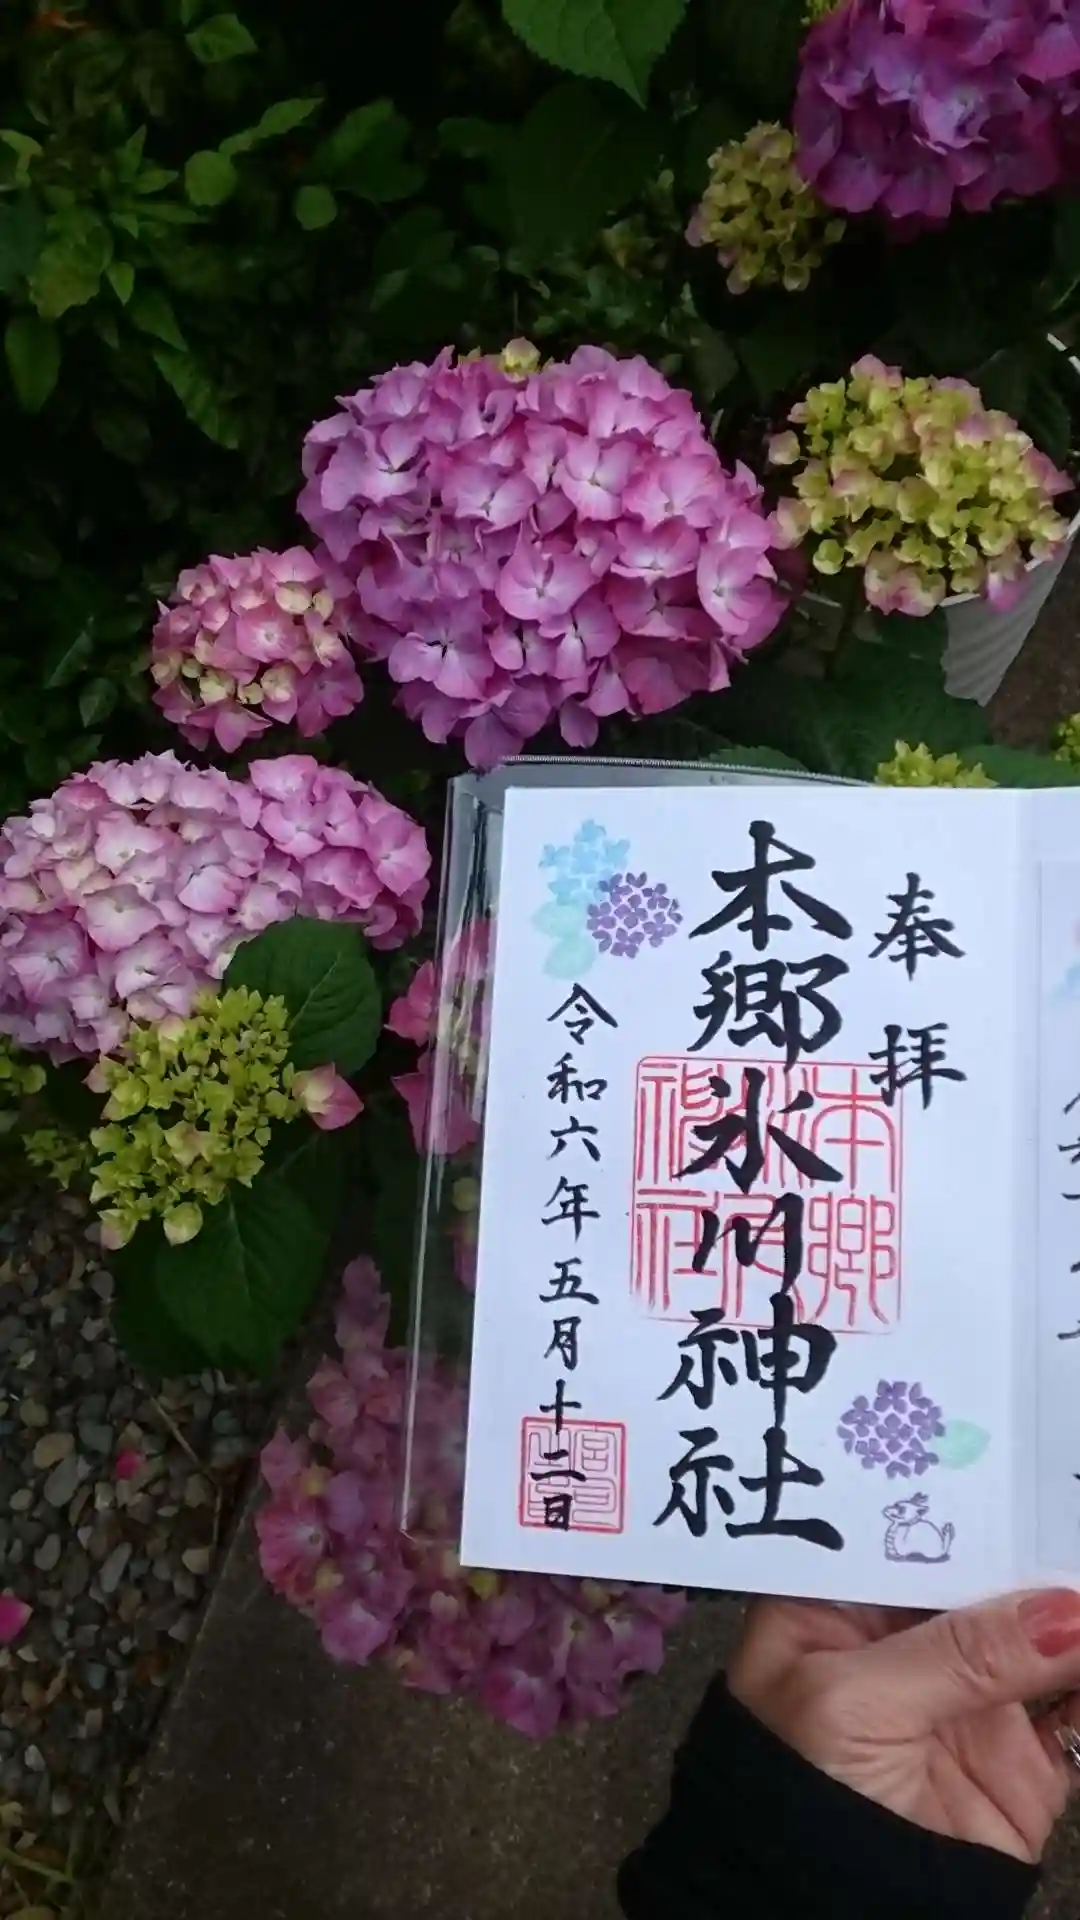 奉拝
本郷氷川神社
令和六年五月十二日
本郷氷川神社